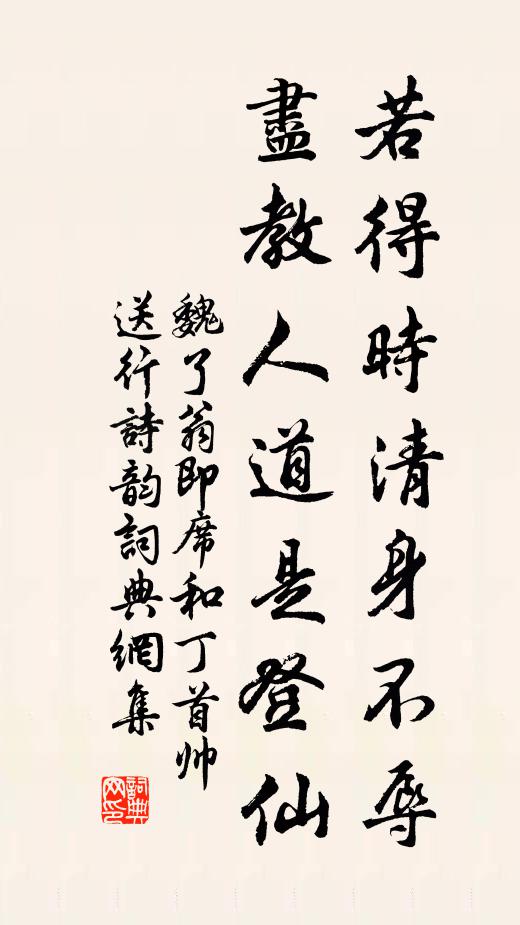 若得時清身不辱
盡教人道是登仙
魏了翁即席和丁首帅
送行詩韵詞典網集
詞典網印